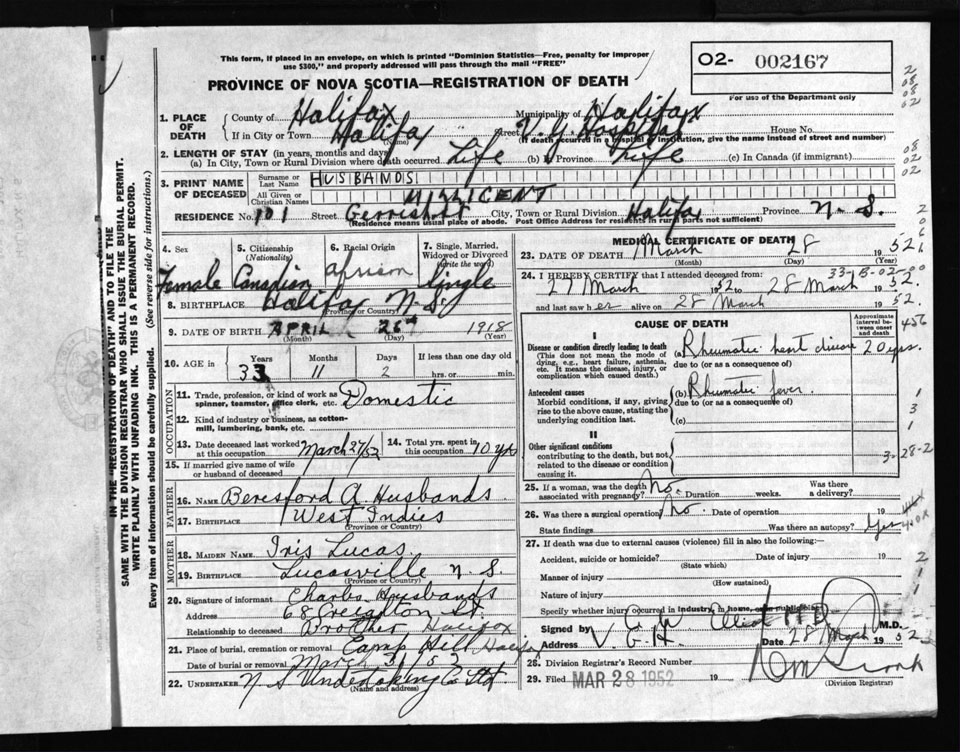 This form, if placed in an envelope, on which is printed "Dominion Statistics—Free, penalty for improper
use $300," and properly addressed will pass through the mail "FREE"
PROVINCE OF NOVA SCOTIA—REGISTRATION OF DEATH
O2- 002167
For use of the Department only
1. PLACE OF DEATH
County of Halifax Municipality of Halifax
If in City or Town Halifax Street V. G. Hospital House No.
(Name) (If death occurred in a hospital or institution, give the name instead of street and number)
2. LENGTH OF STAY (in years, months and days)
(a) In City, Town or Rural Division where death occurred Life (b) In Province Life (c) In Canada (if immigrant)
3. PRINT NAME OF DECEASED
Surname or Last Name HUSBANDS
All Given or Christian Names MILLICENT
RESIDENCE No. 101 Street Gerrish St City, Town or Rural Division Halifax Province N. S.
(Residence means usual place of abode. Post Office Address for residents in rural parts not sufficient)
4. Sex Female
5. Citizenship (Nationality) Canadian
6. Racial Origin African
7. Single, Married, Widowed or Divorced (Write the word) Single
8. BIRTHPLACE Halifax N. S.
(Province or Country)
9. DATE OF BIRTH APRIL 26th 1918
(Month) (Day) (Year)
10. AGE in Years Months Days If less than one day old
33 11 2 hrs. or min.
OCCUPATION
11. Trade, profession, or kind of work as spinner, teamster, office clerk, etc. Domestic
12. Kind of industry or business, as cotton-mill, lumbering, bank, etc.
13. Date deceased last worked at this occupation March 27/52
14. Total yrs. spent in this occupation 10 yrs
15. If married give name of wife or husband of deceased
FATHER
16. NAME Beresford A. Husbands
17. BIRTHPLACE West Indies
(Province or Country)
MOTHER
18. MAIDEN NAME Iris Lucas
19. BIRTHPLACE Lucasville N. S.
(Province or Country)
20. Signature of informant Charles Husbands
Address 68 Creighton St.
Relationship to deceased Brother Halifax
21. Place of burial, cremation or removal Camp Hill Halifax
Date of burial or removal March 31/52
22. UNDERTAKER N S Undertaking Co Ltd
(Name and address)
MEDICAL CERTIFICATE OF DEATH
23. DATE OF DEATH March 28 1952
(Month) (Day) (Year)
33-13-02-00
24. I HEREBY CERTIFY that I attended deceased from:
27 March 1952 to 28 March 1952.
and last saw her alive on 28 March 1952.
CAUSE OF DEATH
Approximate interval between onset and death
I
Disease or condition directly leading to death
(This does not mean the mode of dying, e.g., heart failure, asthenia, etc. It means the disease, injury, or complication which caused death.)
(a) Rheumatic heart disease 20 yrs.
due to (or as a consequence of)
Antecedent causes
Morbid conditions, if any, giving rise to the above cause, stating the underlying condition last.
(b) Rheumatic fever
due to (or as a consequence of)
(c)
II
Other significant conditions
contributing to the death, but not related to the disease or condition causing it.
3-28-2
25. If a woman, was the death associated with pregnancy? No. Duration weeks. Was there a delivery?
26. Was there a surgical operation? No. Date of operation 19
State findings Was there an autopsy? Yes
27. If death was due to external causes (violence) fill in also the following:—
Accident, suicide or homicide? Date of injury 19
(State which)
Manner of injury
(How sustained)
Nature of injury
Specify whether injury occurred in industry, in home, or in public
Signed by Elliot MD M.D.
Address V. G. H. Date 28 March 1952
28. Division Registrar's Record Number
29. Filed MAR 28 1952 19
(Division Registrar)
IN THE "REGISTRATION OF DEATH" AND TO FILE THE
SAME WITH THE DIVISION REGISTRAR WHO SHALL ISSUE THE BURIAL PERMIT.
WRITE PLAINLY WITH UNFADING INK. THIS IS A PERMANENT RECORD.
Every item of information should be carefully supplied. (See reverse side for instructions.)